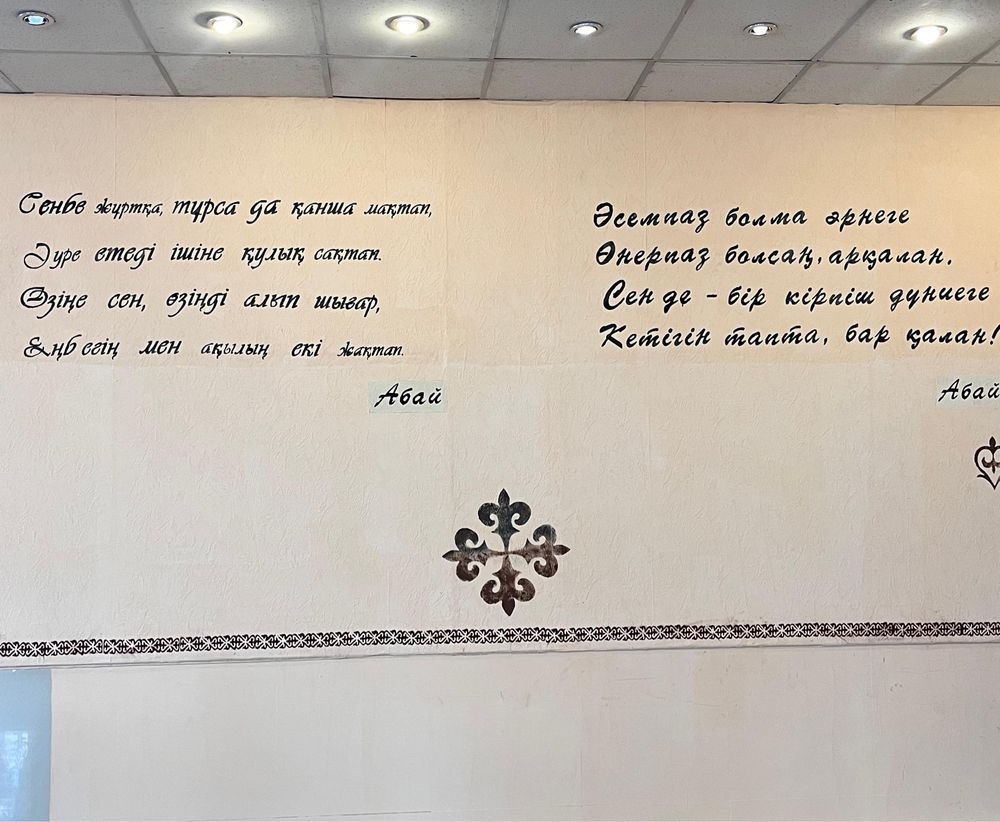 Сенбе жұртқа, тұрса да қанша мақтап,
Әуре етеді ішіне құлық сақтап.
Өзіңе сен, өзіңді алып шығар,
Еңбегің мен ақылың екі жақтап.
Абай
Әсемпаз болма әрнеге
Өнерпаз болсаң, арқалан.
Сен де – бір кірпіш дүниеге
Кетігін тапта, бар қалан!
Абай